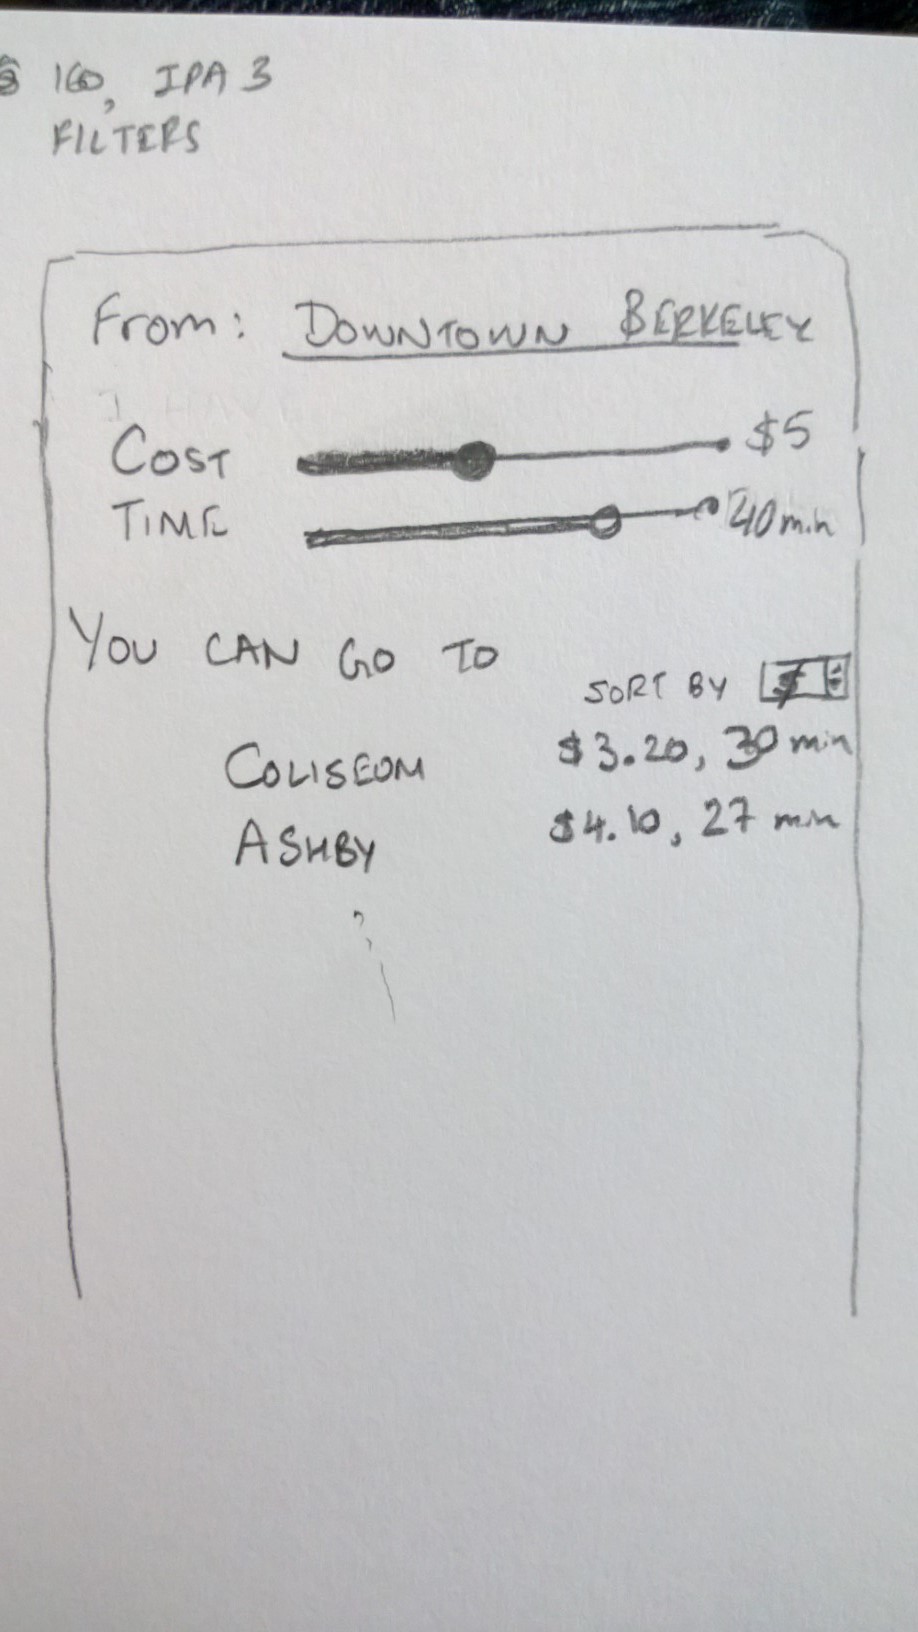 160, IPA 3
FILTERS
From: DOWNTOWN BERKELEY
COST $5
TIME 40 min
YOU CAN GO TO
SORT BY $
COLISEUM $3.20, 30 min
ASHBY $4.10, 27 min